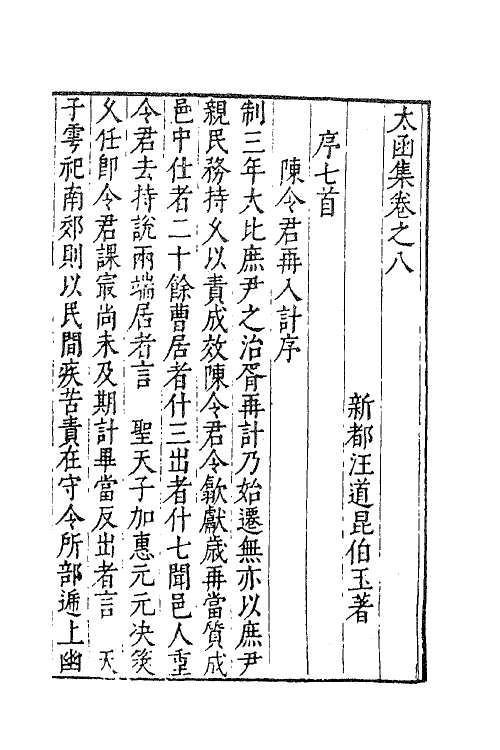 太函集卷之八
新都汪道昆伯玉著
序七首
陳令君再入計序
制三年大比庶尹之治胥再計乃始遷無亦以庶尹
親民務持久以責成效陳令君令歙獻歲再當質成
邑中仕者二十餘曹居者什三出者什七聞邑人重
令君去持說兩端居者言　聖天子加惠元元决筴
久任卽令君課寂尚未及期計畢當反出者言　天
子雩祀南郊則以民間疾苦責在守令所部遞上幽